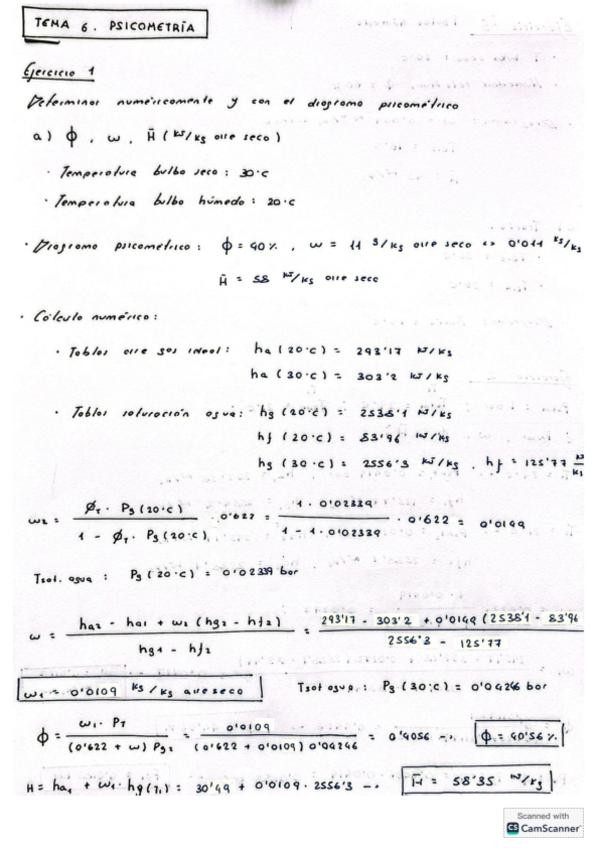 TEMA 6. PSICOMETRÍA
Ejercicio 1
Determinar numéricamente y con el diagrama psicométrico
a) ϕ, ω, H̄ (kJ/kg aire seco)
· Temperatura bulbo seco: 30°C
· Temperatura bulbo húmedo: 20°C
· Diagrama psicométrico: ϕ = 40%, ω = 11 g/kg aire seco <=> 0'011 kg/kg
H̄ = 58 kJ/kg aire seco
· Cálculo numérico:
· Tablas aire gas ideal: ha (20°C) = 293'17 kJ/kg
ha (30°C) = 303'2 kJ/kg
· Tablas saturación agua: hg (20°C) = 2538'1 kJ/kg
hf (20°C) = 83'96 kJ/kg
hg (30°C) = 2556'3 kJ/kg, hf = 125'77 kJ/kg
ω2 = ϕT · Pg (20°C) / 1 - ϕT · Pg (20°C) · 0'622 = 1 · 0'02339 / 1 - 1 · 0'02339 · 0'622 = 0'0149
Tsat. agua: Pg (20°C) = 0'02339 bar
ω = ha2 - ha1 + ω2 (hg2 - hf2) / hg1 - hf2 = 293'17 - 303'2 + 0'0149 (2538'1 - 83'96 / 2556'3 - 125'77
ω1 = 0'0109 kg/kg aire seco Tsat agua: Pg (30°C) = 0'04246 bar
ϕ = ω1 · PT / (0'622 + ω) Pg2 = 0'0109 / (0'622 + 0'0109) 0'04246 = 0'4056 → ϕ = 40'56%
H = ha1 + ω1 · hg (T1) = 30'49 + 0'0109 · 2556'3 → H̄ = 58'35 kJ/kg
Scanned with
CS CamScanner